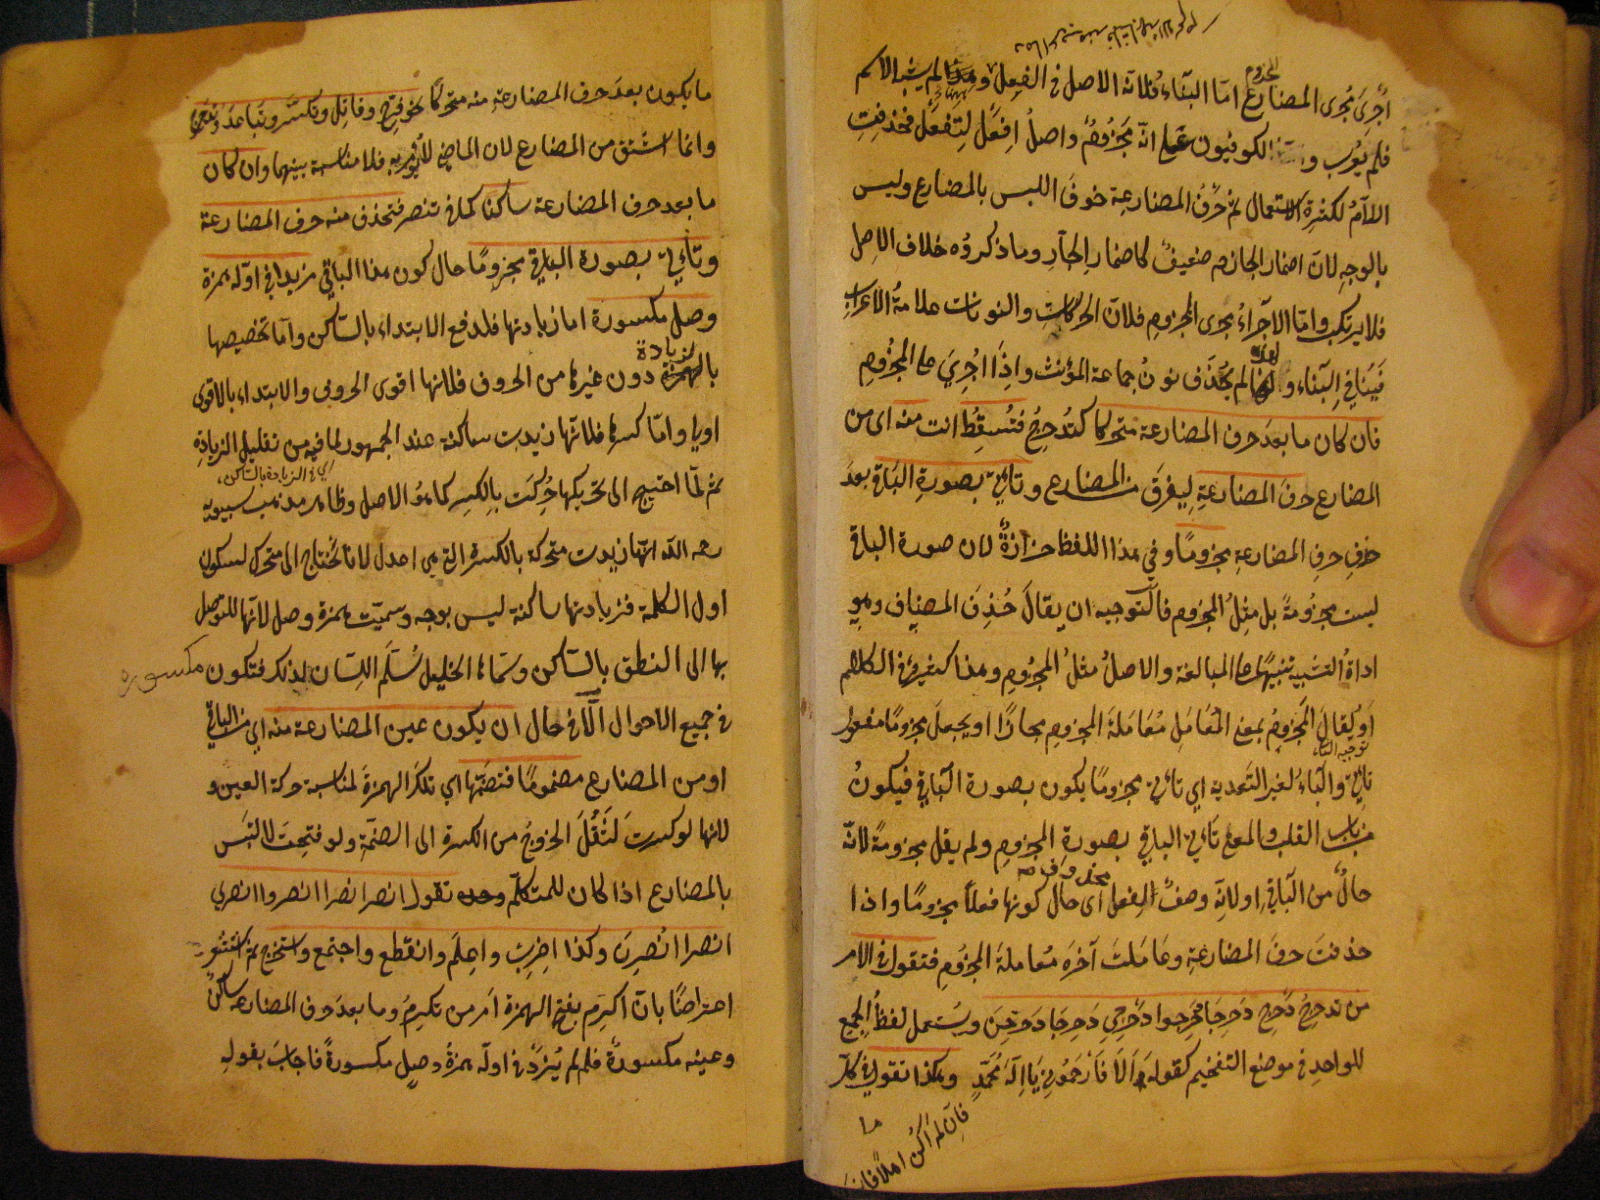 أجرى مجرى المضارع المجزوم اما البناء فلانه الاصل في الفعل ولم يشبه الاسم
فلم يعرب و الكوفيون على انه مجزوم واصل افعل لتفعل فحذفت
اللام لكثرة الاستعمال ثم حرف المضارعة خوف اللبس بالمضارع وليس
بالوجه لان اضمار الجازم ضعيف كاضمار الجار وما ذكروه خلاف الاصل
فلا يرتكب واما الاجراء مجرى المجزوم فلان الحركات والنونات علامة الاعراب
فينافي البناء و لم يحذف نون جماعة المؤنث واذا اجري على المجزوم
فان كان ما بعد حرف المضارعة متحركا كتدحرج فتسقط انت منه اى من
المضارع حرف المضارعة ليفرق من المضارع وتأتي بصورة الباقي بعد
حذف حرف المضارعة مجزوما وفي هذا اللفظ حزازة لان صورة الباقي
ليست مجزومة بل مثل المجزوم فالتوجيه ان يقال حذف المضاف وهو
اداة التشبيه تنبيها على المبالغة والاصل مثل المجزوم وهذا كثير في الكلام
او يقال المجزوم بمعنى المعامل معاملة المجزوم مجازا او يجعل مجزوما مفعول
توجيه الباء
تأتي والباء لغير التعدية اي تأتي مجزوما يكون بصورة الباقي فيكون
من باب القلب والمعنى تأتي الباقي بصورة المجزوم ولم يقل مجزومة لانه
حال من الباقي او لانه وصف الفعل اى حال كونها فعلا مجزوما واذا
حذفت حرف المضارعة وعاملت آخره معاملة المجزوم فتقول في الامر
من تدحرج دحرج دحرجا دحرجوا دحرجي دحرجا دحرجن ويستعمل لفظ الجمع
للواحد في موضع التفخيم كقوله الا فارحموني يا اله محمد وهكذا تقول في كل
ما
فان لم اكن اهلا فانت
ما يكون بعد حرف المضارعة منه متحركا نحو فرح وقاتل وتكسر وتباعد
وانما اشتق من المضارع لان الماضي فلا مناسبة بينهما وان كان
ما بعد حرف المضارعة ساكنا كما في تنصر فتحذف منه حرف المضارعة
وتأتي بصورة الباقي مجزوما حال كون هذا الباقي مزيدا في اوله همزة
وصل مكسورة اما زيادتها فلدفع الابتداء بالساكن واما تخصيصها
بالزيادة دون غيرها من الحروف فلانها اقوى الحروف والابتداء بالاقوى
اولى واما كسرها فلانها زيدت ساكنة عند الجمهور لما فيه من تقليل الزيادة
اي في الزيادة بالساكن
ثم لما احتيج الى تحريكها حركت بالكسر كما هو الاصل وظاهر مذهب سيبويه
رحمه الله انها زيدت متحركة بالكسرة التي هي اعدل لانا نحتاج الى متحرك لسكون
اول الكلمة فزيادتها ساكنة ليس بوجه وسميت همزة وصل لانها للتوصل
بها الى النطق بالساكن وسماها الخليل سلم اللسان لذلك فتكون مكسورة
في جميع الاحوال الا في حال ان يكون عين المضارعة منه اي من الباقي
او من المضارع مضموما فتضمها اي تلك الهمزة لمناسبة حركة العين و
لانها لو كسرت لثقل الخروج من الكسرة الى الضمة ولو فتحت لالتبس
بالمضارع اذا كان للمتكلم وحده تقول انصر انصرا انصروا انصري
انصرا انصرن وكذا اضرب واعلم وانقطع واجتمع واستخرج ثم استشعر
اعتراضا بان اكرم بفتح الهمزة امر من تكرم وما بعد حرف المضارعة ساكن
وعينه مكسورة فلم لم يزد في اوله همزة وصل مكسورة فاجاب بقوله